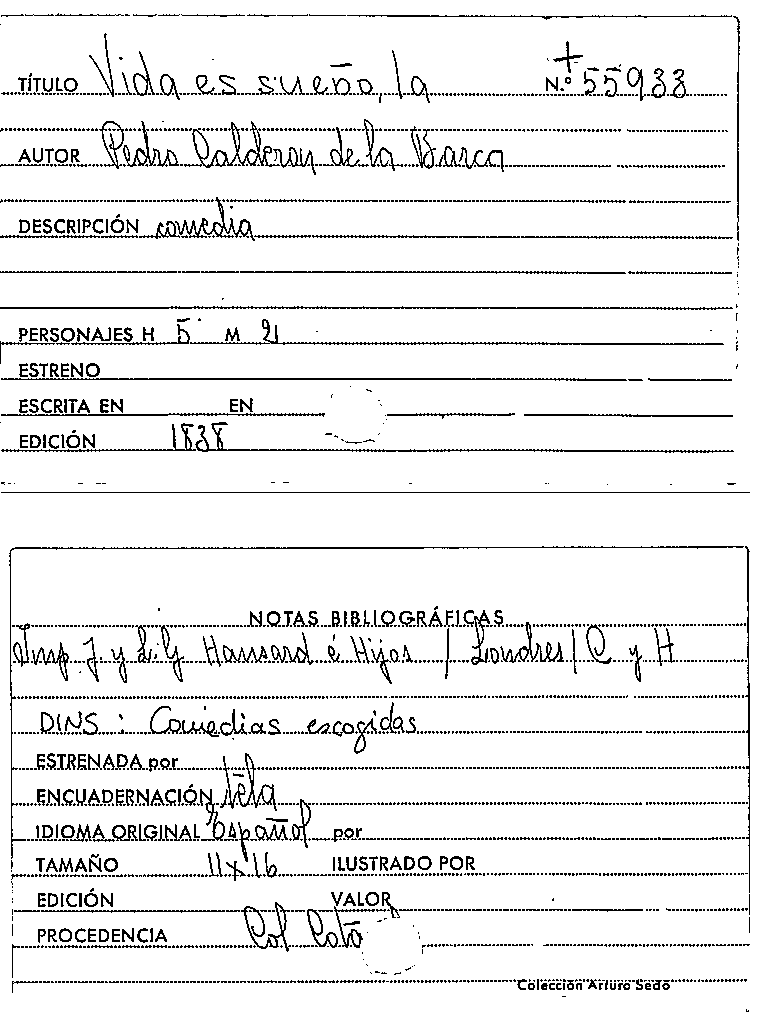 TÍTULO Vida es sueño, la N.º + 55933
AUTOR Pedro Calderon de la Barca
DESCRIPCIÓN comedia
PERSONAJES H 5 M 2
ESTRENO
ESCRITA EN EN
EDICIÓN 1838
NOTAS BIBLIOGRÁFICAS
Imp. J. y L. G Hansard é Hijos / Londres / C y H
DINS : Comedias escogidas
ESTRENADA por
ENCUADERNACIÓN tela
IDIOMA ORIGINAL Español por
TAMAÑO 11 x 16 ILUSTRADO POR
EDICIÓN VALOR
PROCEDENCIA Col Coto
Colección Arturo Sedó